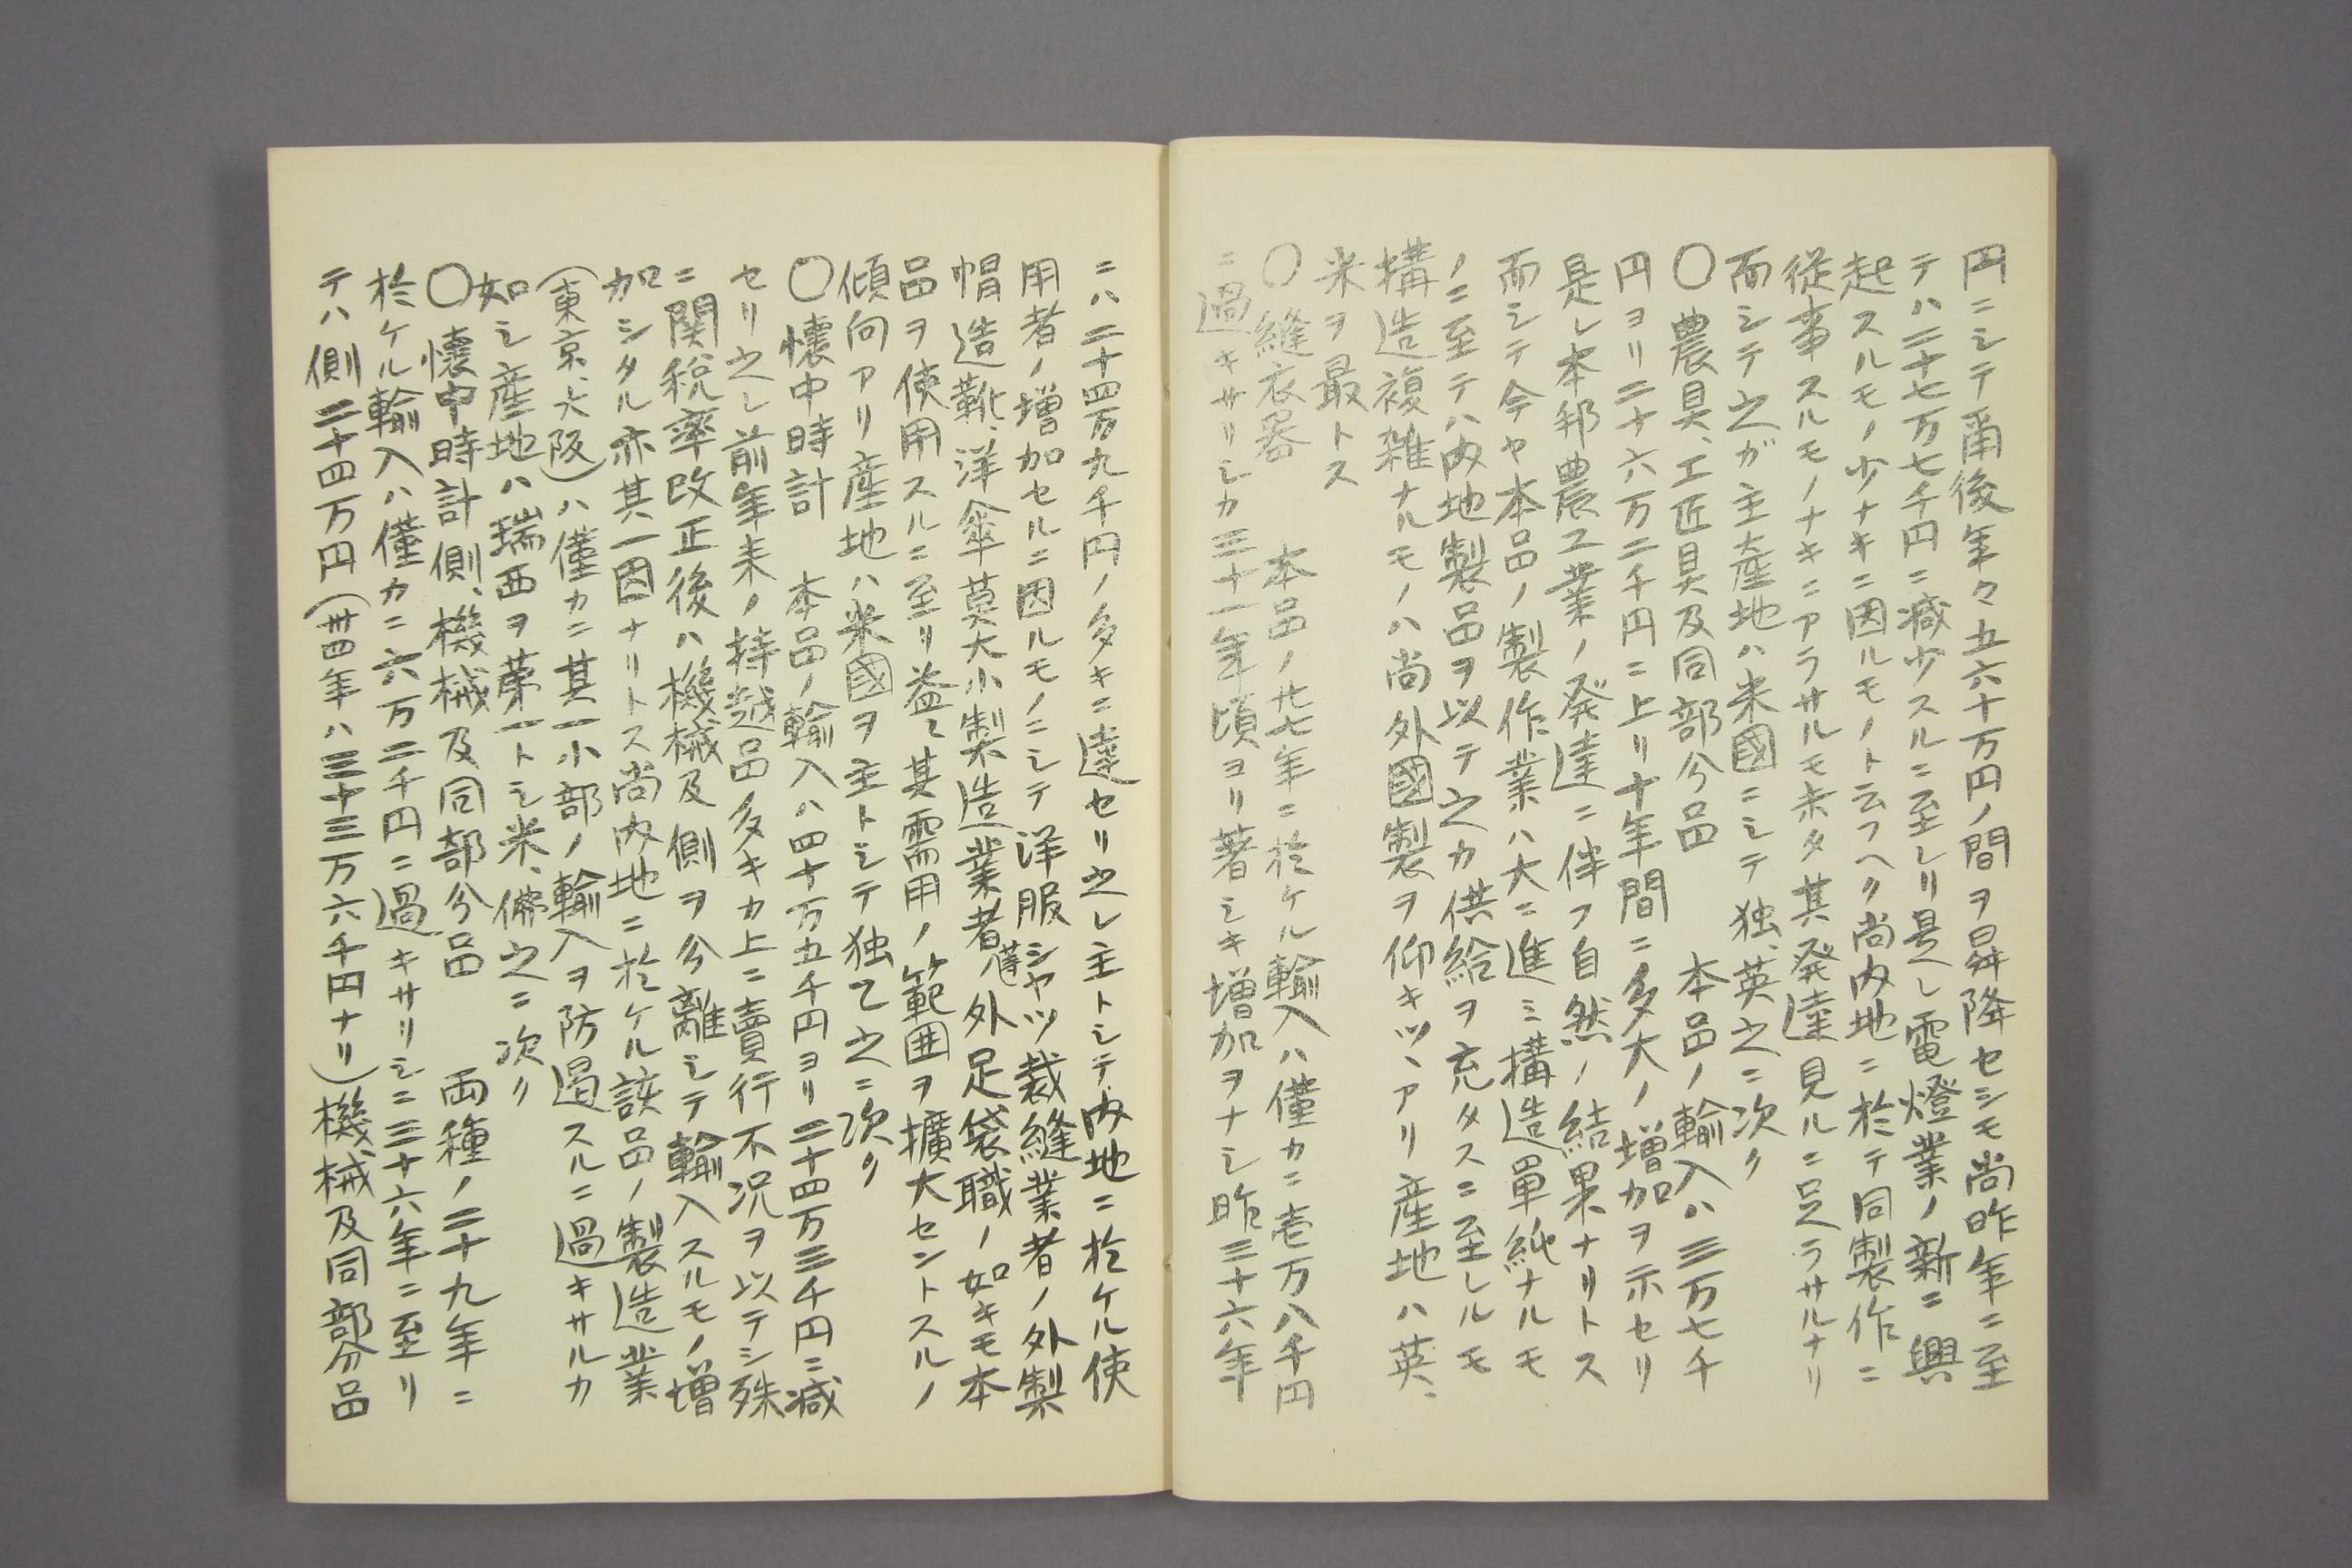 円ニシテ爾後年々五六十万円ノ間ヲ昇降セシモ尚昨年ニ至
テハ二十七万七千円ニ減少スルニ至レリ是レ電燈業ノ新ニ興
起スルモノ少ナキニ因ルモノト云フヘク尚内地ニ於テ同製作ニ
従事スルモノナキニアラサルモ未タ其発達見ルニ足ラサルナリ
而シテ之が主産地ハ米國ニシテ独、英之ニ次ク
〇農具、工匠具及同部分品 本品ノ輸入ハ三万七千
円ヨリ二十六万二千円ニ上リ十年間ニ多大ノ増加ヲ示セリ
是レ本邦農工業ノ発達ニ伴フ自然ノ結果ナリトス
而シテ今ヤ本品ノ製作業ハ大ニ進ミ構造単純ナルモ
ノニ至テハ内地製品ヲ以テ之カ供給ヲ充タスニ至レルモ
構造複雑ナルモノハ尚外國製ヲ仰キツヽアリ産地ハ英、
米ヲ最トス
〇縫衣器 本品ノ廿七年ニ於ケル輸入ハ僅カニ壱万八千円
ニ過キサリシカ三十一年頃ヨリ著シキ増加ヲナシ昨三十六年
ニハ二十四万九千円ノ多キニ達セリ之レ主トシテ内地ニ於ケル使
用者ノ増加セルニ因ルモノニシテ洋服シヤツ裁縫業者ノ外製
帽造靴、洋傘莫大小製造業者等ノ外足袋職ノ如キモ本
品ヲ使用スルニ至リ益々其需用ノ範囲ヲ擴大セントスルノ
傾向アリ産地ハ米國ヲ主トシテ独乙之ニ次ク
〇懐中時計 本品ノ輸入ハ四十万五千円ヨリ二十四万三千円ニ減
セリ之レ前年来ノ持越品多キカ上ニ賣行不况ヲ以テシ殊
ニ関税率改正後ハ機械及側ヲ分離シテ輸入スルモノ増
加シタル亦其一因ナリトス尚内地ニ於ケル該品ノ製造業
(東京、大阪)ハ僅カニ其一小部ノ輸入ヲ防遏スルニ過キサルカ
如シ産地ハ瑞西ヲ第一トシ米、佛之ニ次ク
〇懐中時計側、機械及同部分品 両種ノ二十九年ニ
於ケル輸入ハ僅カニ六万二千円ニ過キサリシニ三十六年ニ至リ
テハ側二十四万円(卅四年ハ三十三万六千円ナリ)機械及同部分品